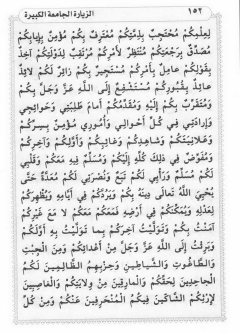 ١٥٢ الزيارة الجامعة الكبيرة
لِعِلْمِكُمْ مُحْتَجِبٌ بِذِمَّتِكُمْ مُعْتَرِفٌ بِكُمْ مُؤْمِنٌ بِإِيَابِكُمْ
مُصَدِّقٌ بِرَجْعَتِكُمْ مُنْتَظِرٌ لِأَمْرِكُمْ مُرْتَقِبٌ لِدَوْلَتِكُمْ آخِذٌ
بِقَوْلِكُمْ عَامِلٌ بِأَمْرِكُمْ مُسْتَجِيرٌ بِكُمْ زَائِرٌ لَكُمْ لَائِذٌ
عَائِذٌ بِقُبُورِكُمْ مُسْتَشْفِعٌ إِلَى اللَّهِ عَزَّ وَجَلَّ بِكُمْ
وَمُتَقَرِّبٌ بِكُمْ إِلَيْهِ وَمُقَدِّمُكُمْ أَمَامَ طَلِبَتِي وَحَوَائِجِي
وَإِرَادَتِي فِي كُلِّ أَحْوَالِي وَأُمُورِي مُؤْمِنٌ بِسِرِّكُمْ
وَعَلَانِيَتِكُمْ وَشَاهِدِكُمْ وَغَائِبِكُمْ وَأَوَّلِكُمْ وَآخِرِكُمْ
وَمُفَوِّضٌ فِي ذٰلِكَ كُلِّهِ إِلَيْكُمْ وَمُسَلِّمٌ فِيهِ مَعَكُمْ وَقَلْبِي
لَكُمْ مُسَلِّمٌ وَرَأْيِي لَكُمْ تَبَعٌ وَنُصْرَتِي لَكُمْ مُعَدَّةٌ حَتَّى
يُحْيِيَ اللَّهُ تَعَالَى دِينَهُ بِكُمْ وَيَرُدَّكُمْ فِي أَيَّامِهِ وَيُظْهِرَكُمْ
لِعَدْلِهِ وَيُمَكِّنَكُمْ فِي أَرْضِهِ فَمَعَكُمْ مَعَكُمْ لَا مَعَ غَيْرِكُمْ
آمَنْتُ بِكُمْ وَتَوَلَّيْتُ آخِرَكُمْ بِمَا تَوَلَّيْتُ بِهِ أَوَّلَكُمْ
وَبَرِئْتُ إِلَى اللَّهِ عَزَّ وَجَلَّ مِنْ أَعْدَائِكُمْ وَمِنَ الْجِبْتِ
وَالطَّاغُوتِ وَالشَّيَاطِينِ وَحِزْبِهِمُ الظَّالِمِينَ لَكُمُ
الْجَاحِدِينَ لِحَقِّكُمْ وَالْمَارِقِينَ مِنْ وِلَايَتِكُمْ وَالْغَاصِبِينَ
لِإِرْثِكُمُ الشَّاكِّينَ فِيكُمُ الْمُنْحَرِفِينَ عَنْكُمْ وَمِنْ كُلِّ